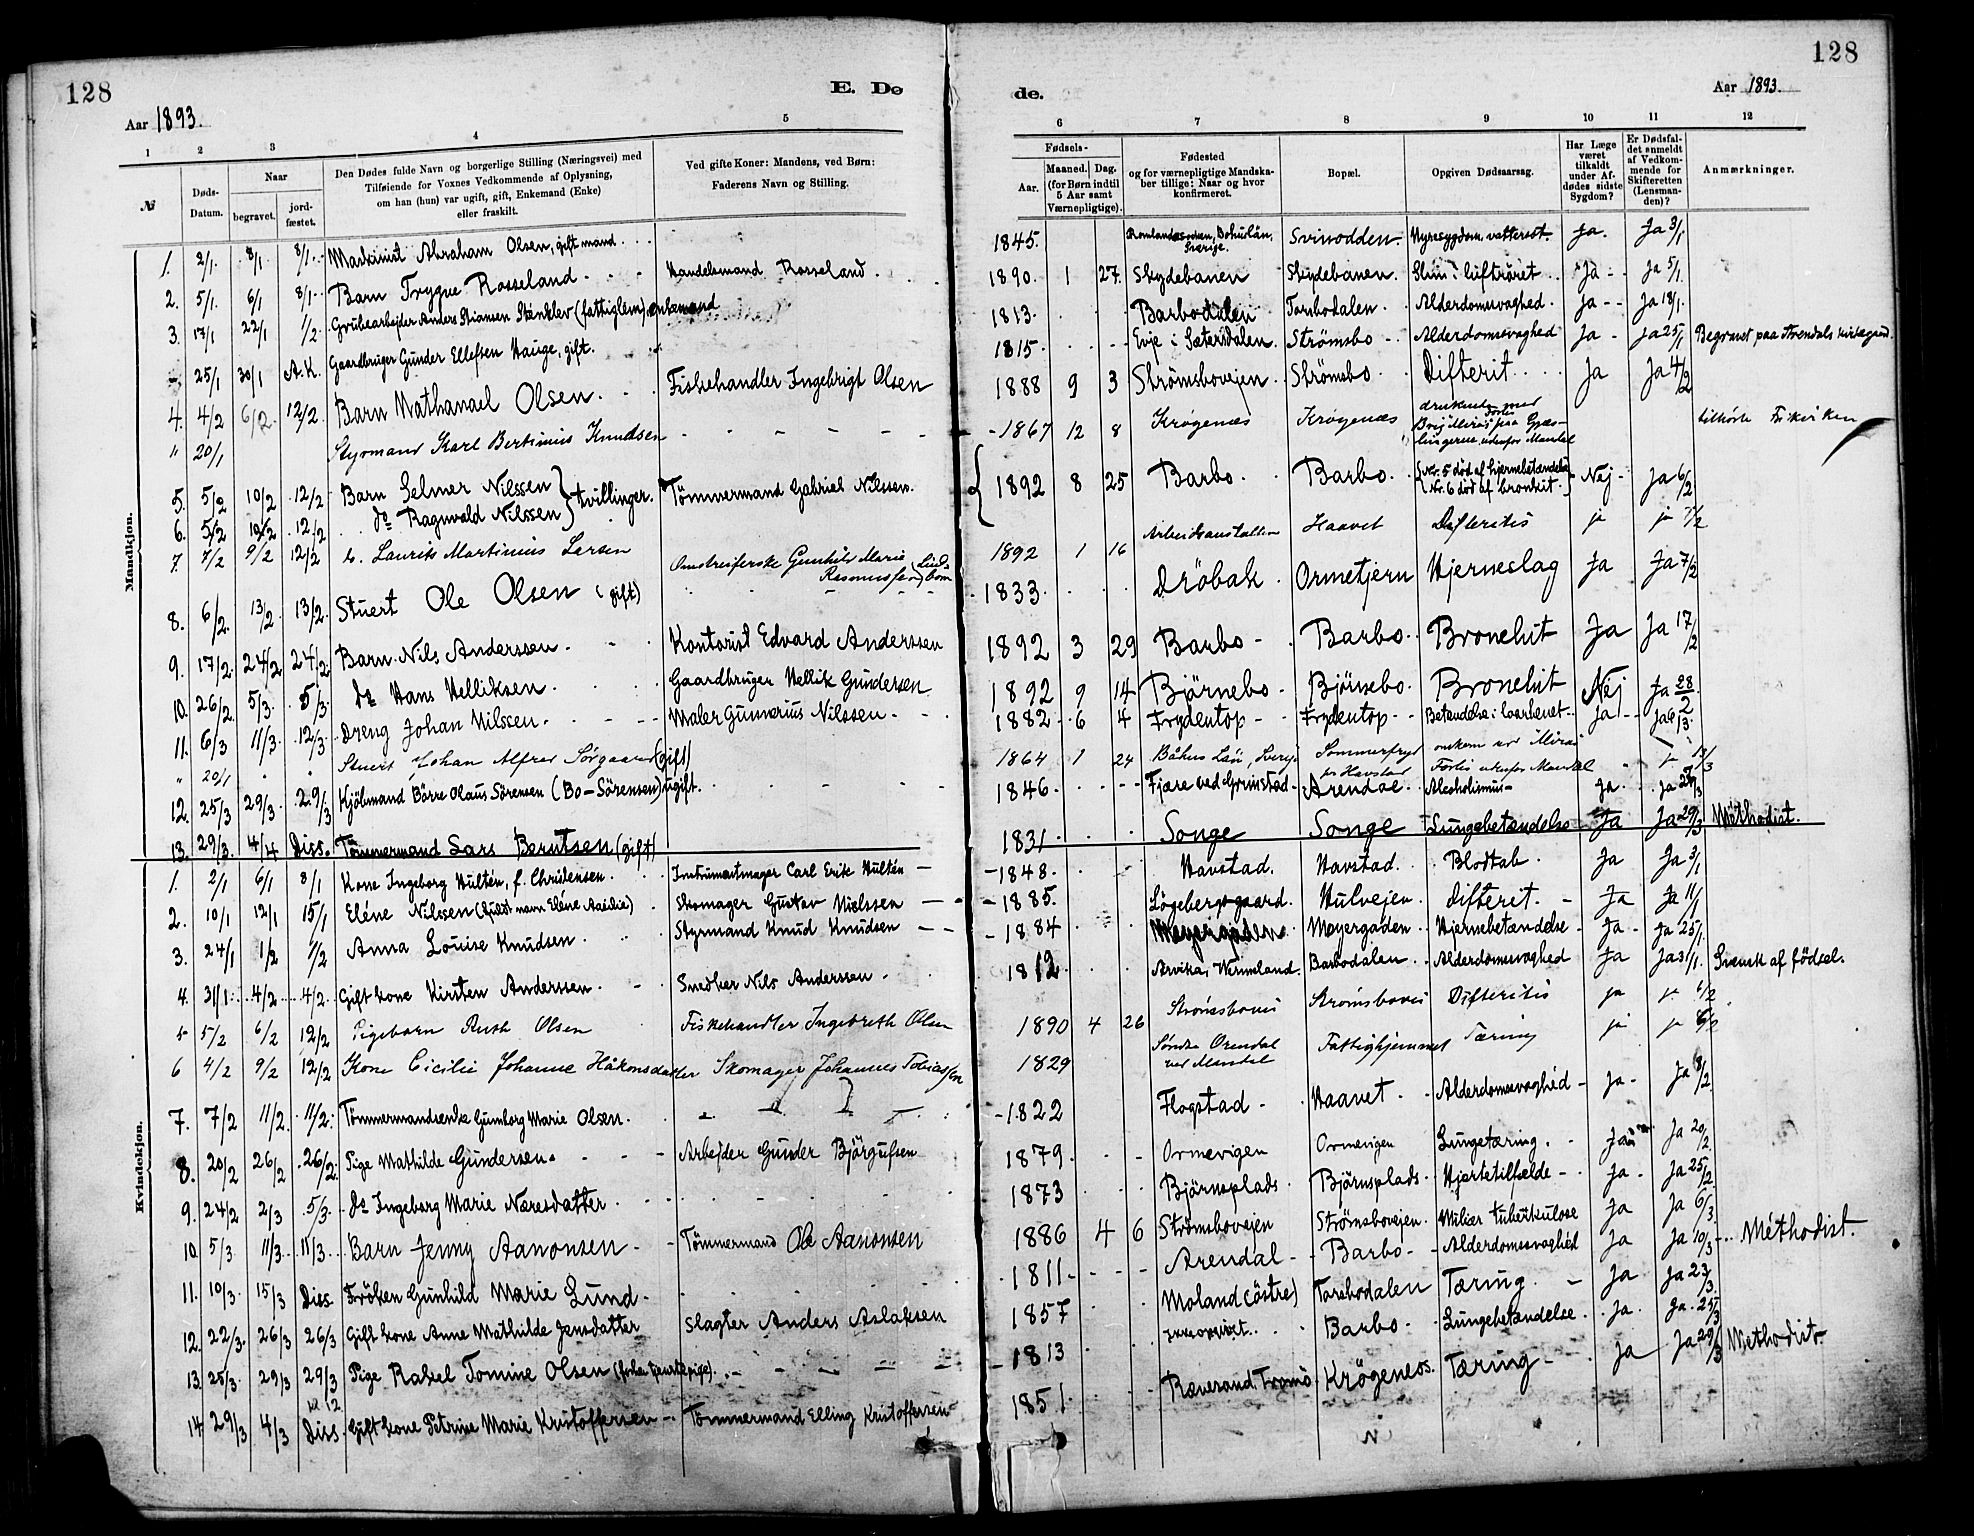 128
128
E. Dø
de.
Aar 1893.
Aar 1893.
1 2 3 4 5 6 7 8 9 10 11 12
№
Døds-
Datum.
Naar
begravet.
jord-
fæstet.
Den Dødes fulde Navn og borgerlige Stilling (Næringsvei) med
Tilføiende for Voxnes Vedkommende af Oplysning,
om han (hun) var ugift, gift, Enkemand (Enke)
eller fraskilt.
Ved gifte Koner: Mandens, ved Børn:
Faderens Navn og Stilling.
Fødsels-
Aar.
Maaned.
Dag.
(for Børn indtil
5 Aar samt
Værnepligtige).
Fødested
og for værnepligtige Mandska-
ber tillige: Naar og hvor
konfirmeret.
Bopæl.
Opgiven Dødsaarsag.
Har Læge
været
tilkaldt
under Af-
dødes sidste
Sygdom?
Er Dødsfal-
det anmeldt
af Vedkom-
mende for
Skifteretten
(Lensman-
den)?
Anmærkninger.
Mandkjøn.
1. 2/1. 8/1. 8/1. Maskinist Abraham Olsen, gift mand. 1845. Bohuslän, Sverige. Svinodden. Nyresygdom, vattersot. Ja. Ja 3/1
2. 5/1. 6/1 8/1. Barn Trygve Rosseland Handelsmand Rosseland. 1890. 1 27. Skydebanen Skydebanen. Slim i luftröret Ja Ja 5/1.
3. 17/1 22/1 1/2. Grubearbejder Anders Stiansen Stenklev (fattiglem) enkemand 1813. Barbodalen Torsbodalen. Alderdomsvaghed. Ja Ja 18/1.
25/1 30/1 A.K. Gaardbruger Gunder Ellefsen Hauge, gift. 1815. Evje i Sætersdalen. Strömsbo Alderdomsvaghed Ja Ja 25/1 Begravet paa Arendals kirkegaard.
4. 4/2 6/2. 12/2. Barn Nathanael Olsen. Fiskehandler Ingebrigt Olsen 1888 9 3 Strömsbovejen. Strömsbo Difterit. Ja Ja 4/2
" 20/1 Styrmand Karl Bertinius Knudsen 1867 12 8 Krøgenæs Krøgenæs druknede med Brig "Mirös" paa Gjæslingerne udenfor Mandal tilhörte Frikirken
5. 5/2 10/2 12/2 Barn Selmer Nilssen } tvillinger. Tömmermand Gabriel Nilssen. 1892 8 25 Barbo. Barbo. (Nr. 5 död af hjernebetændelse Nej Ja 6/2
6. 5/2 10/2 12/2 do Ragnvald Nilssen (Nr. 6 död af bronkit.)
7. 7/2 9/2 12/2 b. Laurits Martinius Larsen Omstreiferske Gunhild Marie Rasmussen 1892 1 16 Arbeidsanstalten Haavet Difteritis ja ja 7/2
8. 6/2. 13/2. 13/2. Stuert Ole Olsen (gift) 1833. Dröbak. Ormetjern Hjerneslag Ja Ja 7/2
9. 17/2. 24/2 24/2 Barn Nils Anderssen. Kontorist Edvard Anderssen 1892 3 29 Barbo Barbo. Bronchit Ja Ja 17/2
10. 26/2. 5/3. 5/3. do Hans Helliksen. Gaardbruger Hellik Gundersen 1892 9 14 Björnebo. Björnebo. Bronchit Nej Ja 28/2
11. 6/3 11/3. 12/3 Dreng Johan Nilssen. Maler Gunnerius Nilssen. 1882 6 4 Frydentop Frydentop Betændelse i laarbenet Ja Ja
" 20/1 Stuert Johan Alfred Sørgaard (gift) 1864 1 24 Båhus Län, Sverige Sommerfryd pr Havstad omkom ved "Mirös" Forlis udenfor Mandal 13/3
12. 25/3 29/3. 29/3 Kjöbmand Börre Olaus Sörensen (Bo-Sörensen) ugift. 1846. Fjære ved Grimstad Arendal. Alcoholismus Ja. Ja 27/3
13. 29/3. 4/4 Diss. Tömmermand Lars Berntsen (gift) 1831. Songe Songe Lungebetændelse Ja Ja 29/3 Méthodist.
Kvindekjøn.
1. 2/1 6/1 8/1 Kone Ingeborg Hultén, f. Christensen. Instrumentmager Carl Erik Hultén 1848. Havstad. Havstad. Blodtab. Ja Ja 3/1
2. 10/1 12/1 15/1 Eléne Nilssen Skomager Gustav Nielssen 1885. Lögebergsgaard. Hulvejen. Difterit. Ja Ja 11/1
3. 24/1 1/2 1/2 Anna Louise Knudsen Styrmand Knud Knudsen 1884 Meyergaden Meyergaden. Hjernebetændelse Ja Ja 25/1.
4. 31/1. 4/2 4/2. Gift kone Kirsten Anderssen. Snedker Nils Anderssen. 1812. Arvika, Wermeland. Barbodalen Alderdomsvaghed Ja Ja 31/1. Svensk af födsel.
5 5/2 6/2 12/2 Pigebarn Ruth Olsen Fiskehandler Ingebreth Olsen 1890 4 26 Strömsbovei Strömsbovei Difteritis ja 6/2
6 4/2 9/2 12/2 Kone Cicilie Johanne Håkonsdatter Skomager Johannes Tobiassen 1829 Søndre Orendal ved Mandal Fattighjemmet Tæring ja 6/2
7. 7/2 11/2. 11/2. Tömmermandsenke Gunborg Marie Olsen. 1822 Flogstad Haavet Alderdomsvaghéd Ja Ja 8/2
8. 20/2 26/2 26/2. Pige Mathilde Gundersen. Arbejder Gunder Björgufsen 1879. Ormevigen Ormevigen Lungetæring. Ja Ja 20/2.
9. 24/2 2/3 5/3. do Ingeborg Marie Næresdatter. 1873 Björnsplads Björnsplads. Hjertetilfælde Ja Ja 25/2
10. 5/3 11/3 11/3. Barn Jenny Aanonsen Tömmermand Ole Aanonsen 1886 4 6 Strömsbovejen Strömsbovejen. Miliær tuberkulose Ja Ja 6/3
11. 10/3. 15/3 Diss. Fröken Gunhild Marie Lund. 1811. Arendal Barbo Alderdomsvaghéd Ja Ja 10/3 Méthodist.
12. 22/3. 26/3 26/3 Gift kone Anne Mathilde Jensdatter Slagter Anders Aslaksen 1857 Moland (östre) Torsbodalen Tæring. Ja Ja 23/3.
13. 25/3. 29/3 29/3 Pige Rakel Tomine Olsen 1813 Barbo Lungebetændelse. Ja. Ja. 25/3
14. 29/3 4/3 Diss. Gift kone Petrine Marie Kristoffersen Tömmermand Elling Kristoffersen 1851. Rævesand, Tromö Krögenæs. Tæring Ja Ja 29/3 Methodist